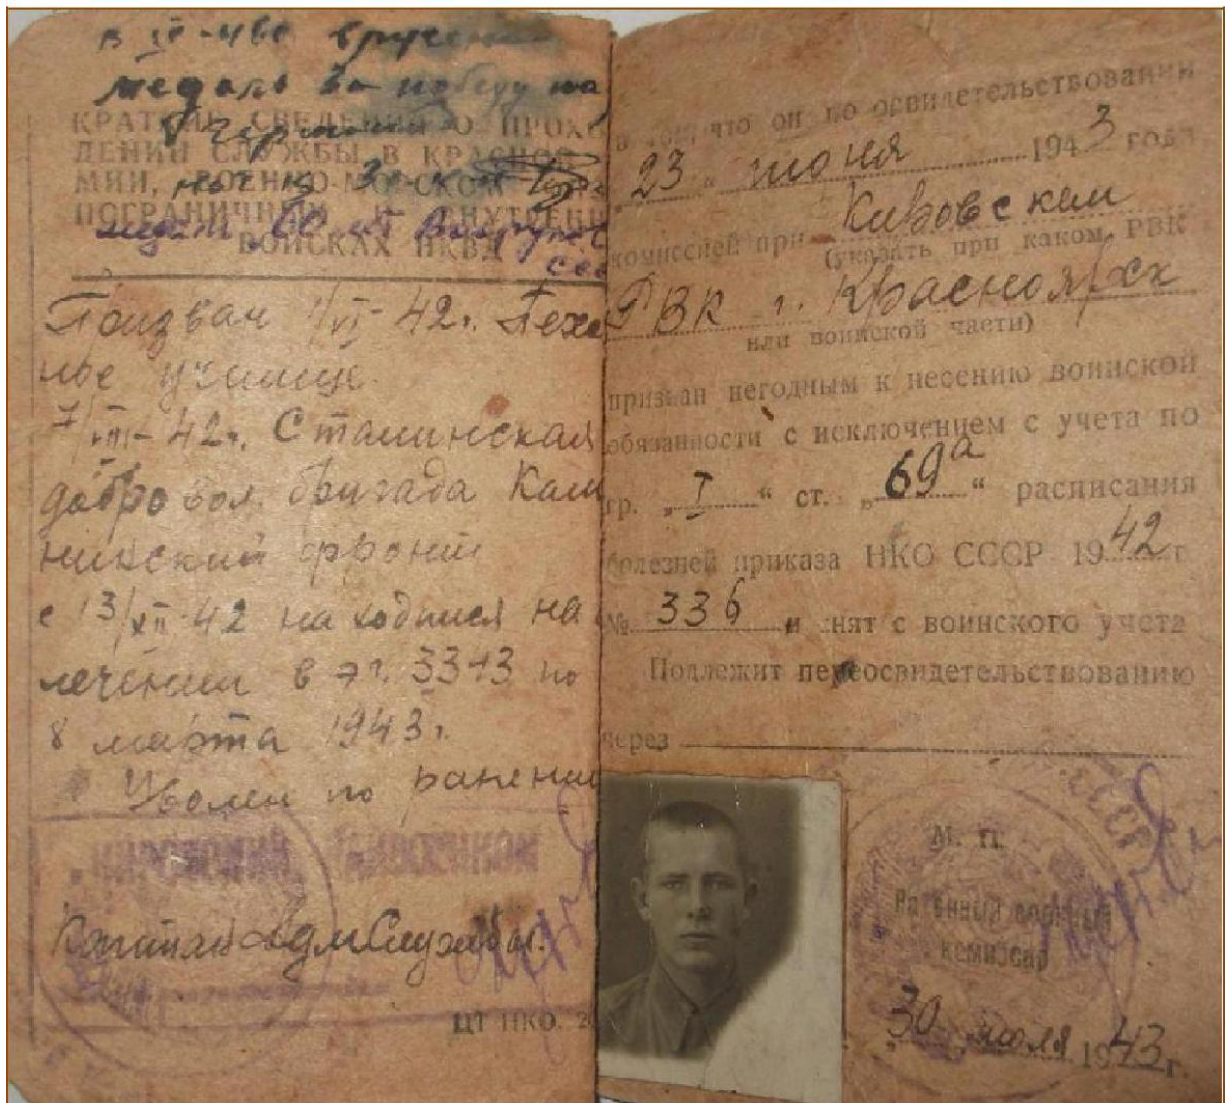 в ... вручен
медаль за победу на
Герман
КРАТКИЕ СВЕДЕНИЯ О ПРОХО
ДЕНИИ СЛУЖБЫ В КРАСНОЙ
МИИ, ВОЕННО-МОРСКОМ
ПОГРАНИЧНЫХ И ВНУТРЕНН
60 лет Вооруж. С
ВОЙСКАХ НКВД
Призван 1/VI-42г. Пехо
ное училище
7/VIII-42г. Сталинская
добровол. бригада Кали
нинский фронт
с 13/XII-42 находился на
лечении в эг. 3313 по
8 марта 1943г.
Уволен по ранени
КИРОВСКИЙ РАЙВОЕНКОМ
Капитан Адм Службы.
ЦТ НКО. 2
в том, что он по освидетельствовании
„23„ июня 1943 года
комиссией при Кировском
(указать при каком РВК
РВК г. Красноярск
или воинской части)
признан негодным к несению воинской
обязанности с исключением с учета по
гр. „I“ ст. „69а“ расписания
болезней приказа НКО СССР 1942 г
№ 336 и снят с воинского учета
Подлежит переосвидетельствованию
через
СССР
М. П.
Районный военный
комиссар
„30„ июля 1943 г.